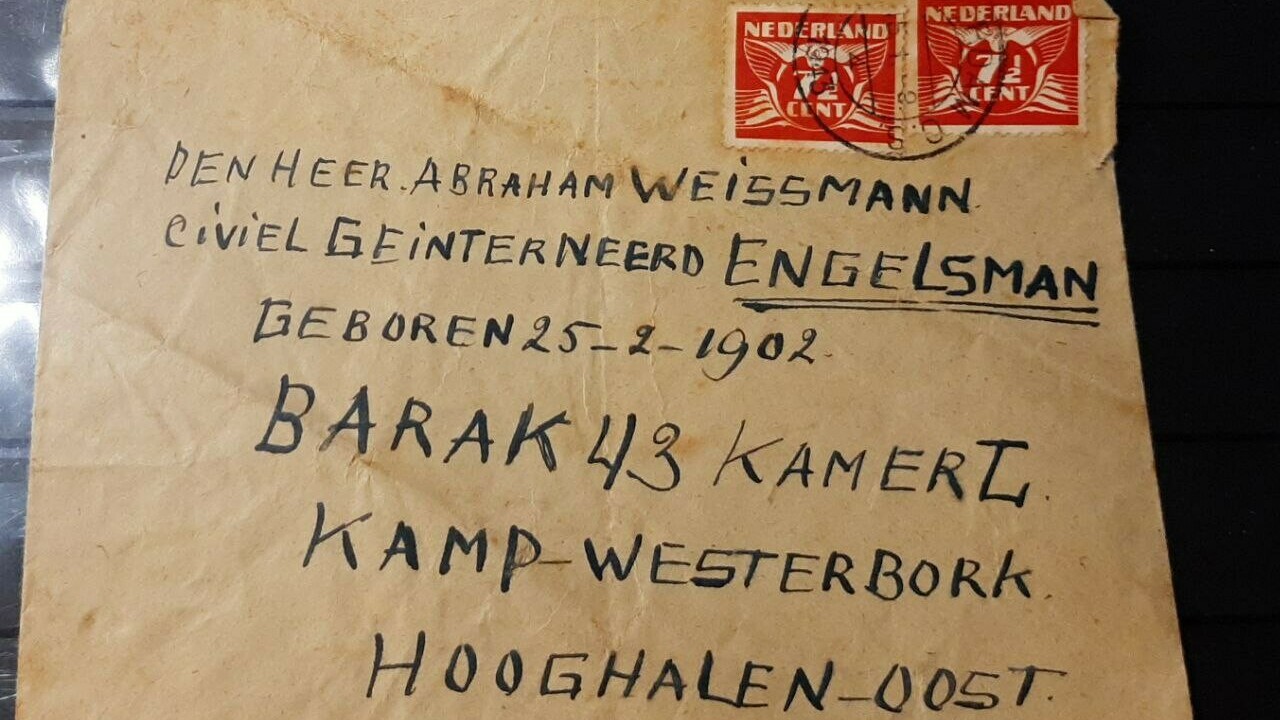 NEDERLAND NEDERLAND
7½ 7½
CENT CENT
DEN HEER. ABRAHAM WEISSMANN.
CIVIEL GEINTERNEERD ENGELSMAN
GEBOREN 25-2-1902.
BARAK 43 KAMER I.
KAMP-WESTERBORK.
HOOGHALEN-OOST.